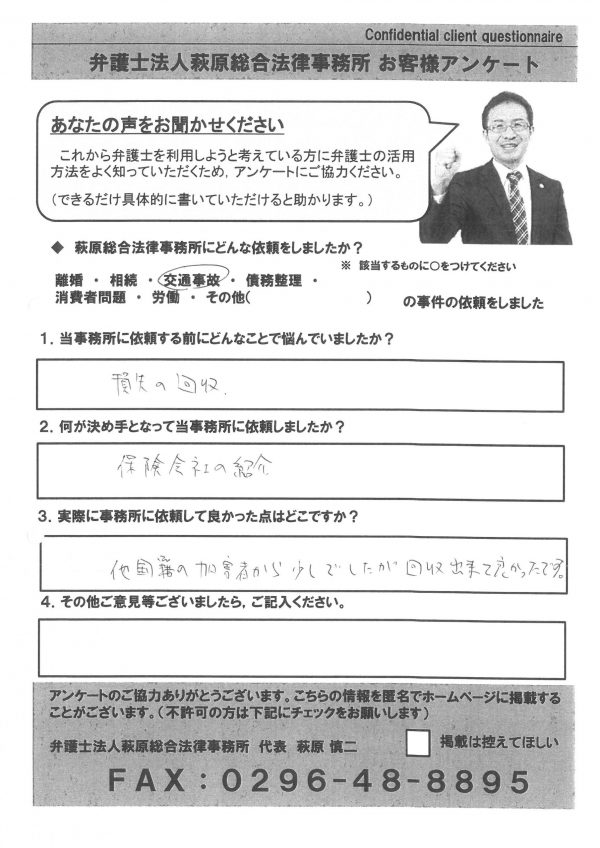 Confidential client questionnaire
弁護士法人萩原総合法律事務所 お客様アンケート
あなたの声をお聞かせください
これから弁護士を利用しようと考えている方に弁護士の活用
方法をよく知っていただくため，アンケートにご協力ください。
（できるだけ具体的に書いていただけると助かります。）
◆ 萩原総合法律事務所にどんな依頼をしましたか？
※ 該当するものに○をつけてください
離婚 ・ 相続 ・ 交通事故 ・ 債務整理 ・
消費者問題 ・ 労働 ・ その他（ ） の事件の依頼をしました
１．当事務所に依頼する前にどんなことで悩んでいましたか？
損失の回収．
２．何が決め手となって当事務所に依頼しましたか？
保険会社の紹介
３．実際に事務所に依頼して良かった点はどこですか？
他国籍の加害者から少しでしたが回収出来て良かったです。
４．その他ご意見等ございましたら，ご記入ください。
アンケートのご協力ありがとうございます。こちらの情報を匿名でホームページに掲載する
ことがございます。（不許可の方は下記にチェックをお願いします）
弁護士法人萩原総合法律事務所 代表 萩原 慎二
掲載は控えてほしい
ＦＡＸ：０２９６－４８－８８９５